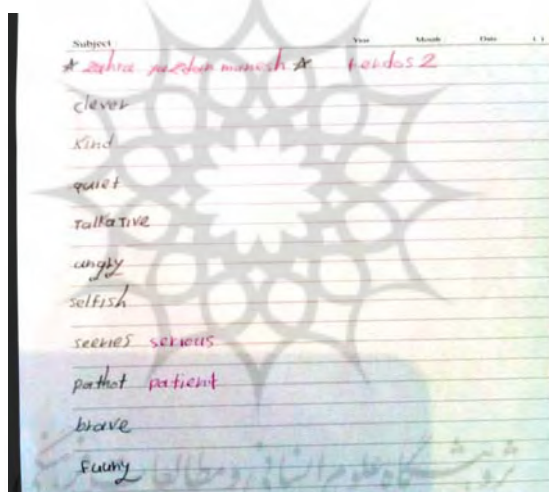 Subject : Year Month Date
☆ zahra yazdan manesh ☆ ferdos 2
clever
kind
quiet
Talkative
ungly
selfish
seeries serious
pathot patient
brave
Fuuny
پژوهشگاه علوم انسانی و مطالعات فرهنگی